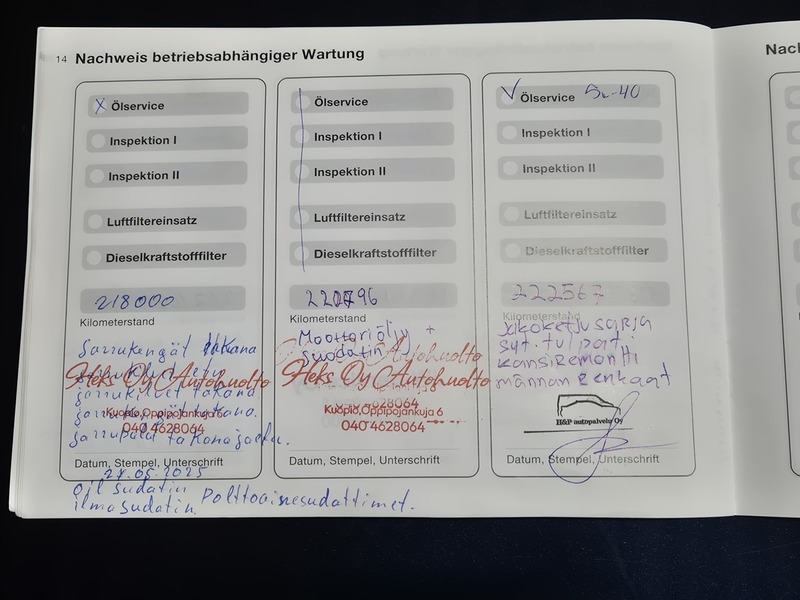 14 Nachweis betriebsabhängiger Wartung
X Ölservice
Inspektion I
Inspektion II
Luftfiltereinsatz
Dieselkraftstofffilter
218000
Kilometerstand
Jarrukengät takana
jarrulevyt takana
takana.
jarrupala takana ja etu.
Heks Oy Autohuolto
Kuopio, Oppipojankuja 6
040 4628064
Datum, Stempel, Unterschrift
28.05.2025
oil sudatin
ilmasudatin Polttoainesudattimet.
Ölservice
Inspektion I
Inspektion II
Luftfiltereinsatz
Dieselkraftstofffilter
Kilometerstand
Moottoriöljy +
suodatin
Heks Oy Autohuolto
Kuopio, Oppipojankuja 6
040 4628064
Datum, Stempel, Unterschrift
Ölservice 5w-40
Inspektion I
Inspektion II
Luftfiltereinsatz
Dieselkraftstofffilter
222567
Kilometerstand
Jakoketjusarja
syt.tulpat.
kansiremontti
männän renkaat
H&P autopalvelu Oy
Datum, Stempel, Unterschrift
Nach